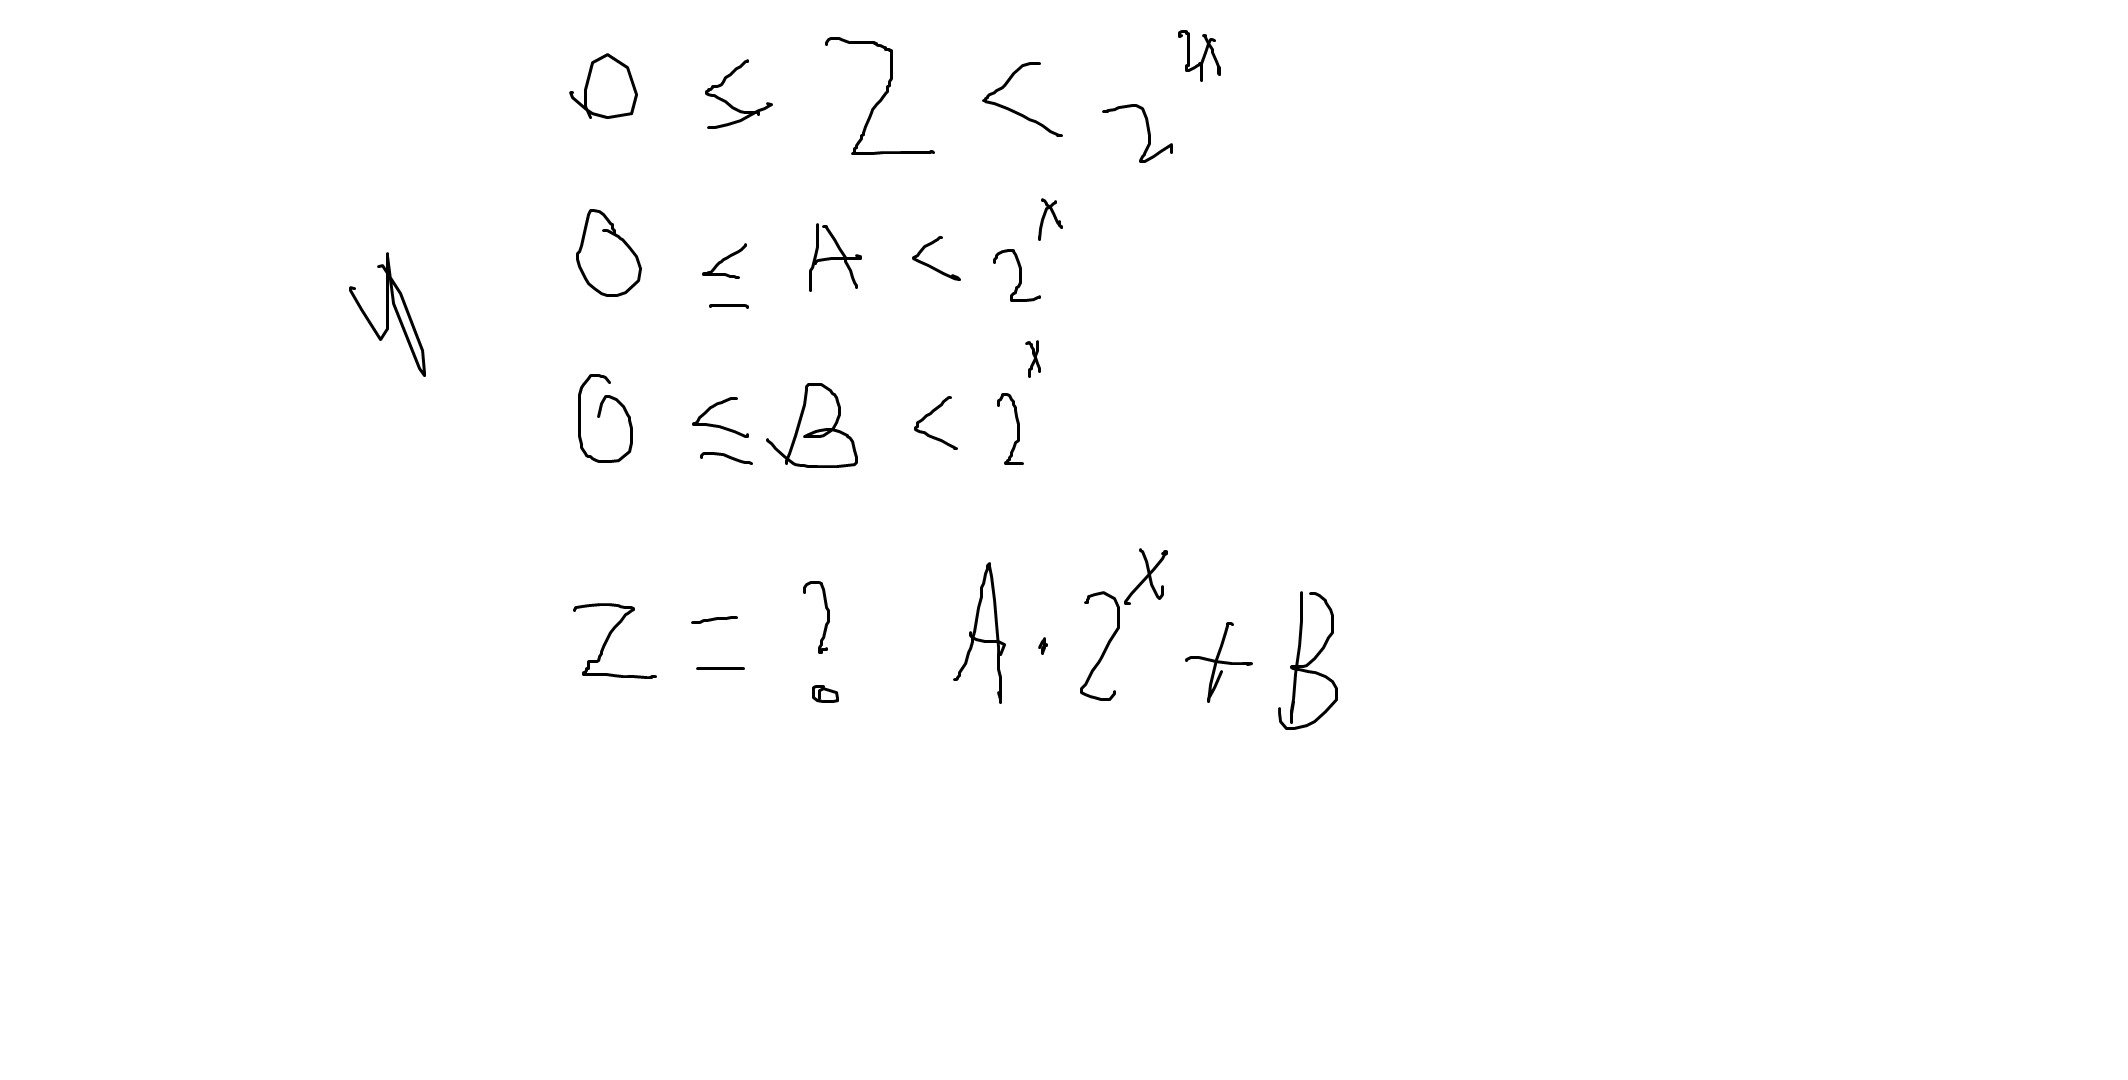 0 ≤ Z < 2^2x
0 ≤ A < 2^x
0 ≤ B < 2^x
Z = ? A · 2^x + B